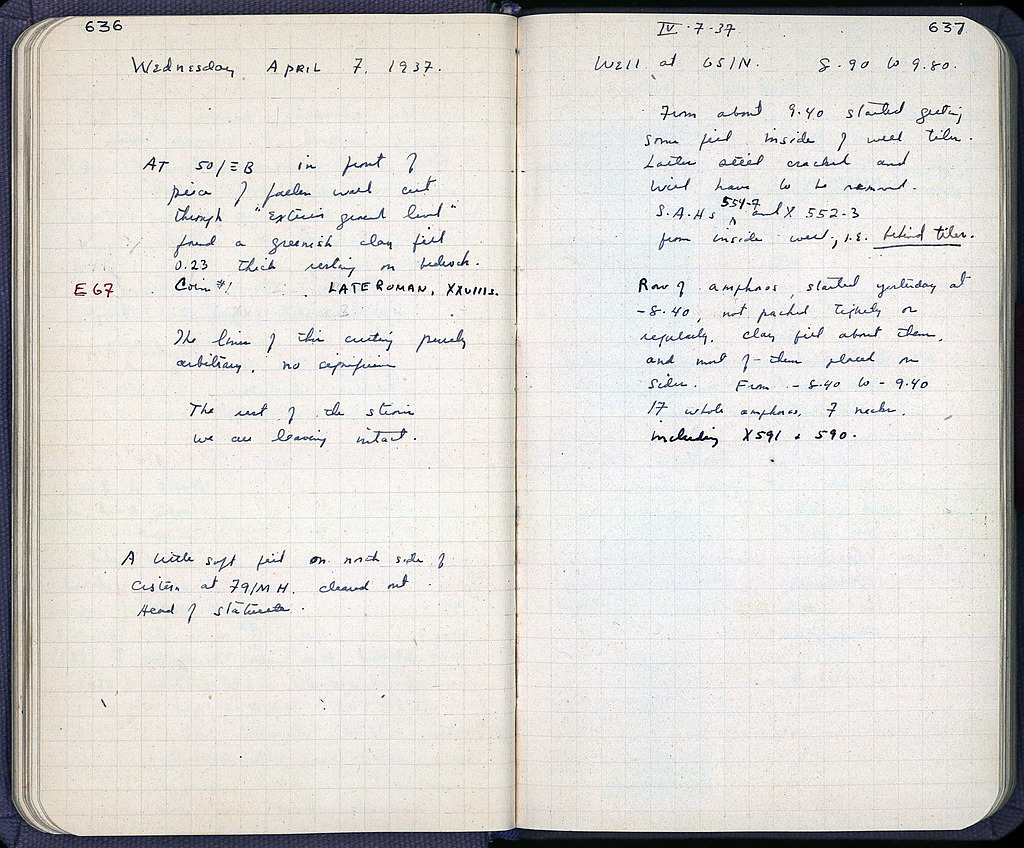 636
Wednesday APRIL 7, 1937.
AT 50/ΞB in front of
piece of fallen wall cut
through "exterior ground level"
found a greenish clay fill
0.23 thick resting on bedrock.
E67 Coin #1 LATE ROMAN, XXVIIIs.
The lines of this cutting purely
arbitrary, no significance
The rest of the
we are leaving intact.
A little soft fill on north side of
cistern at 79/MH. cleared out
Head of statuette.
IV-7-37 637
Well at 8.90 to 9.80.
From about 9.40 started getting
some fill inside of well tiles.
Latter still cracked and
will have to be removed.
S.A.Hs 554-7 and X 552-3
from inside well, i.e. behind tiles.
Row of amphoras, started yesterday at
-8.40, not packed tightly or
regularly. clay fill about them,
and most of them placed on
sides. From -8.40 to -9.40
17 whole amphoras, 7 necks.
including X591 & 590.